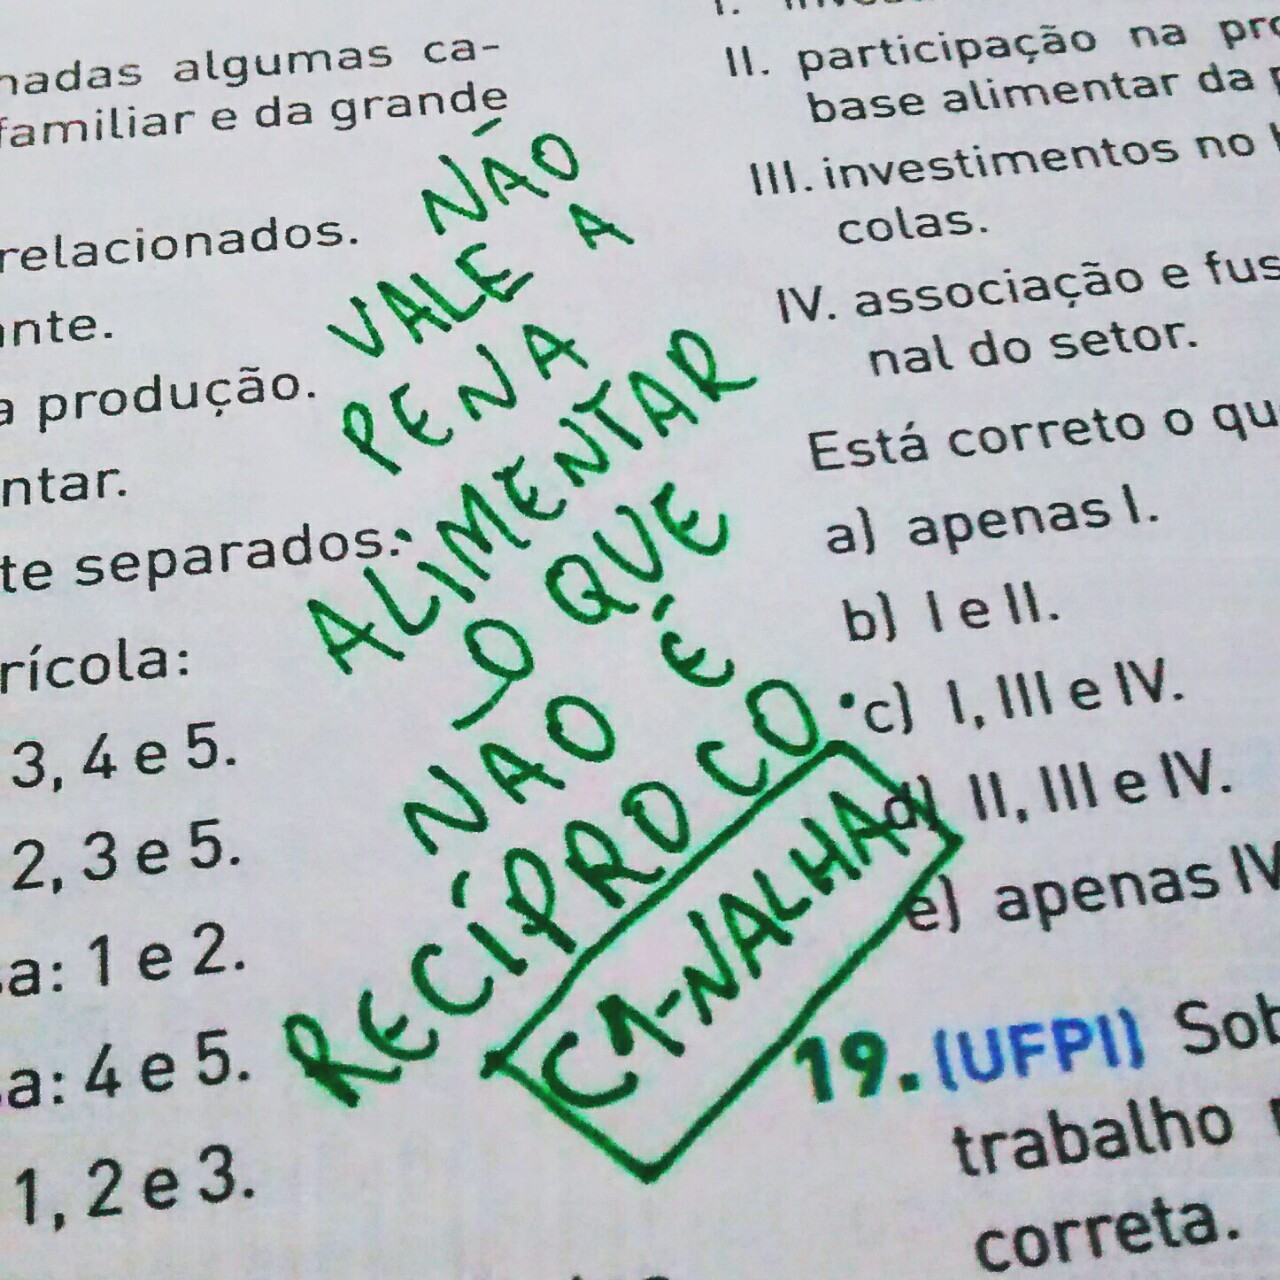 nadas algumas ca-
familiar e da grande
relacionados.
ante.
a produção.
ntar.
te separados.
rícola:
3, 4 e 5.
2, 3 e 5.
a: 1 e 2.
a: 4 e 5.
1, 2 e 3.
NÃO
VALE A
PENA
ALIMENTAR
O QUE
NÃO É
RECÍPROCO
CA-NALHA
II. participação na pro
base alimentar da p
III. investimentos no
colas.
IV. associação e fus
nal do setor.
Está correto o qu
a) apenas I.
b) I e II.
c) I, III e IV.
d) II, III e IV.
e) apenas IV
19. (UFPI) Sob
trabalho
correta.